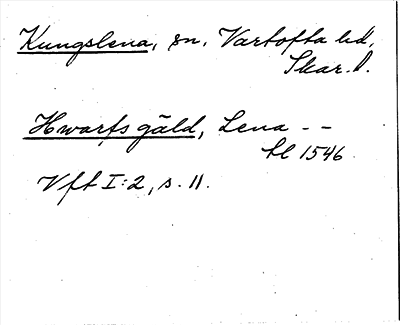 Kungslena, sn, Vartofta hd,
Skar. l.
Hwarfs gäld, Lena - -
hl 1546
Vft I:2, s. 11.